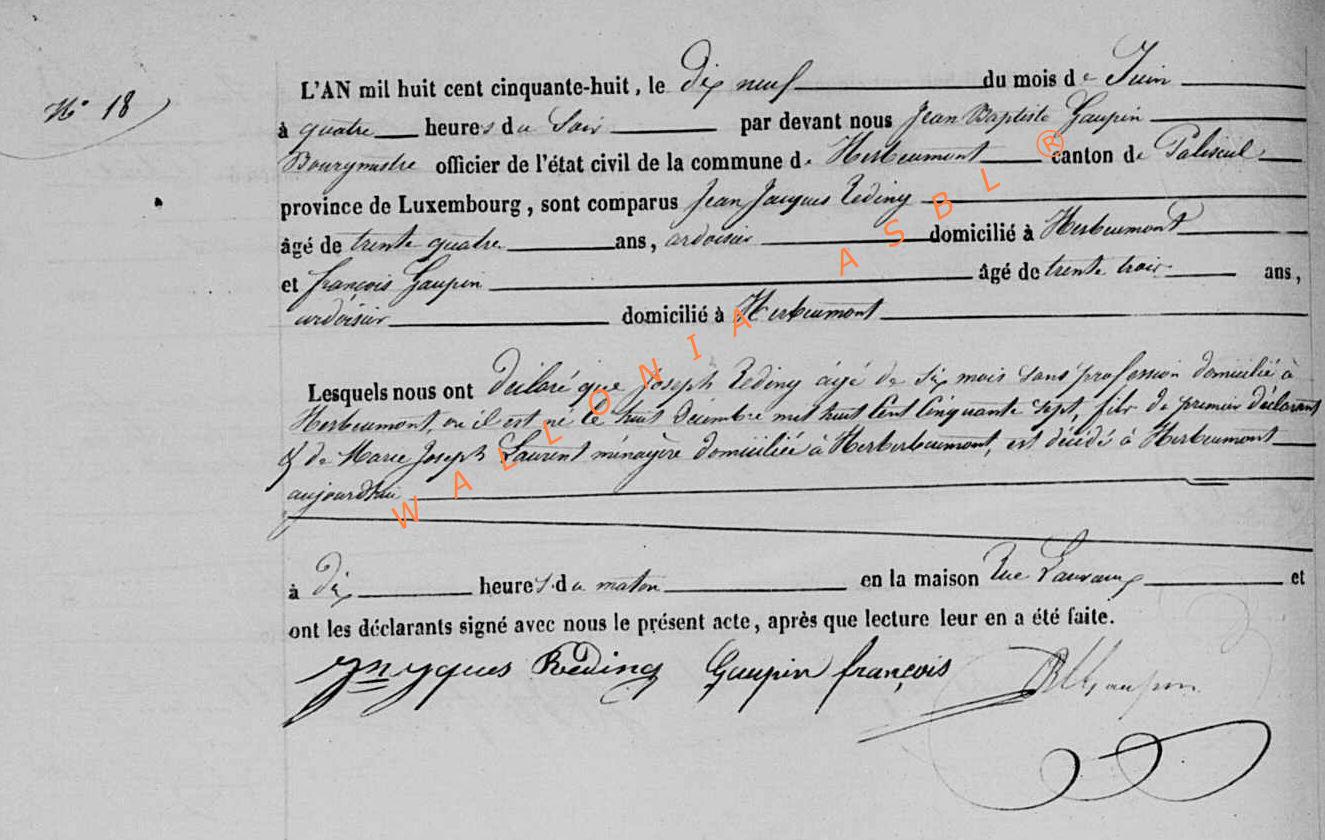 N° 18
L'AN mil huit cent cinquante-huit, le dix neuf du mois de Juin
à quatre heures du Soir par devant nous Jean Baptiste Gaupin
Bourgmestre officier de l'état civil de la commune de Herbeumont canton de Paliseul
province de Luxembourg, sont comparus Jean Jacques Rediny
âgé de trente quatre ans, ardoisier domicilié à Herbeumont
et françois Gaupin âgé de trente trois ans,
ardoisier domicilié à Herbeumont
Lesquels nous ont déclaré que Joseph Rediny agé de Six mois Sans profession domicilié à
Herbeumont, où il est né le huit décembre mil huit Cent Cinquante Sept, fils de premier déclarant
& de Marie Joseph Laurent ménagère domiciliée à Herberbeumont, est décédé à Herbeumont
aujourd'hui
à dix heures du matin en la maison Rue et
ont les déclarants signé avec nous le présent acte, après que lecture leur en a été faite.
Jn Jques Reding Gaupin françois JBGaupin
WALLONIA ASBL ®